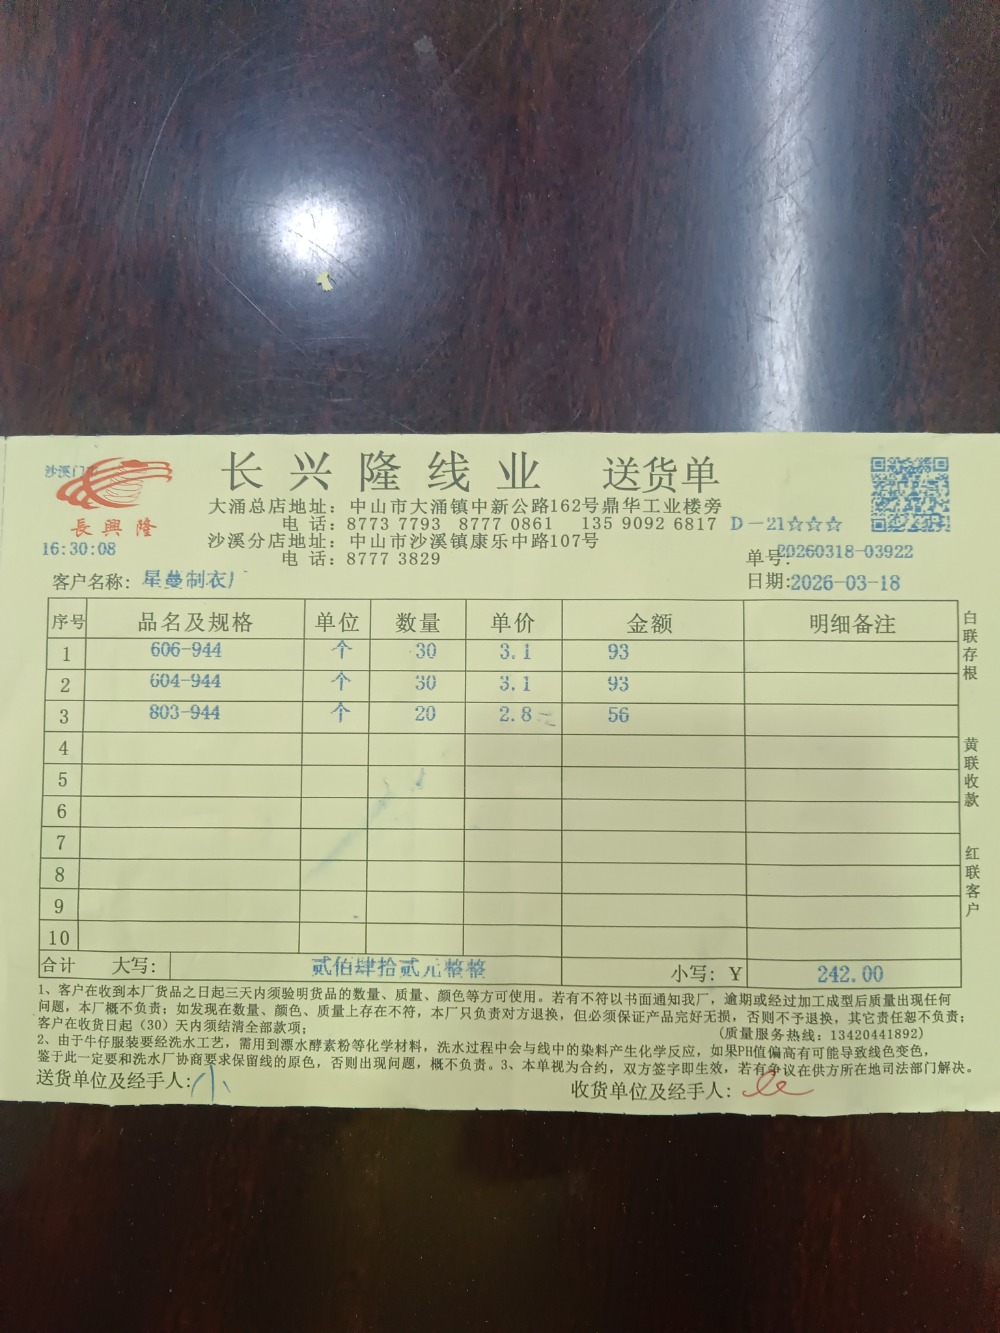 沙溪门
長興隆
长兴隆线业 送货单
大涌总店地址：中山市大涌镇中新公路162号鼎华工业楼旁
电 话：8773 7793 8777 0861 135 9092 6817 D－21☆☆☆
沙溪分店地址：中山市沙溪镇康乐中路107号
电 话：8777 3829
16:30:08
单号:20260318-03922
客户名称：星蔓制衣厂
日期:2026-03-18
序号 品名及规格 单位 数量 单价 金额 明细备注
1 606-944 个 30 3.1 93
2 604-944 个 30 3.1 93
3 803-944 个 20 2.8 56
4
5
6
7
8
9
10
合计 大写： 贰佰肆拾贰元整整 小写：Y 242.00
白联存根
黄联收款
红联客户
1、客户在收到本厂货品之日起三天内须验明货品的数量、质量、颜色等方可使用。若有不符以书面通知我厂，逾期或经过加工成型后质量出现任何
问题，本厂概不负责；如发现在数量、颜色、质量上存在不符，本厂只负责对方退换，但必须保证产品完好无损，否则不予退换，其它责任恕不负责；
客户在收货日起（30）天内须结清全部款项； (质量服务热线：13420441892)
2、由于牛仔服装要经洗水工艺，需用到漂水酵素粉等化学材料，洗水过程中会与线中的染料产生化学反应，如果PH值偏高有可能导致线色变色，
鉴于此一定要和洗水厂协商要求保留线的原色，否则出现问题，概不负责。3、本单视为合约，双方签字即生效，若有争议在供方所在地司法部门解决。
送货单位及经手人：小
收货单位及经手人：